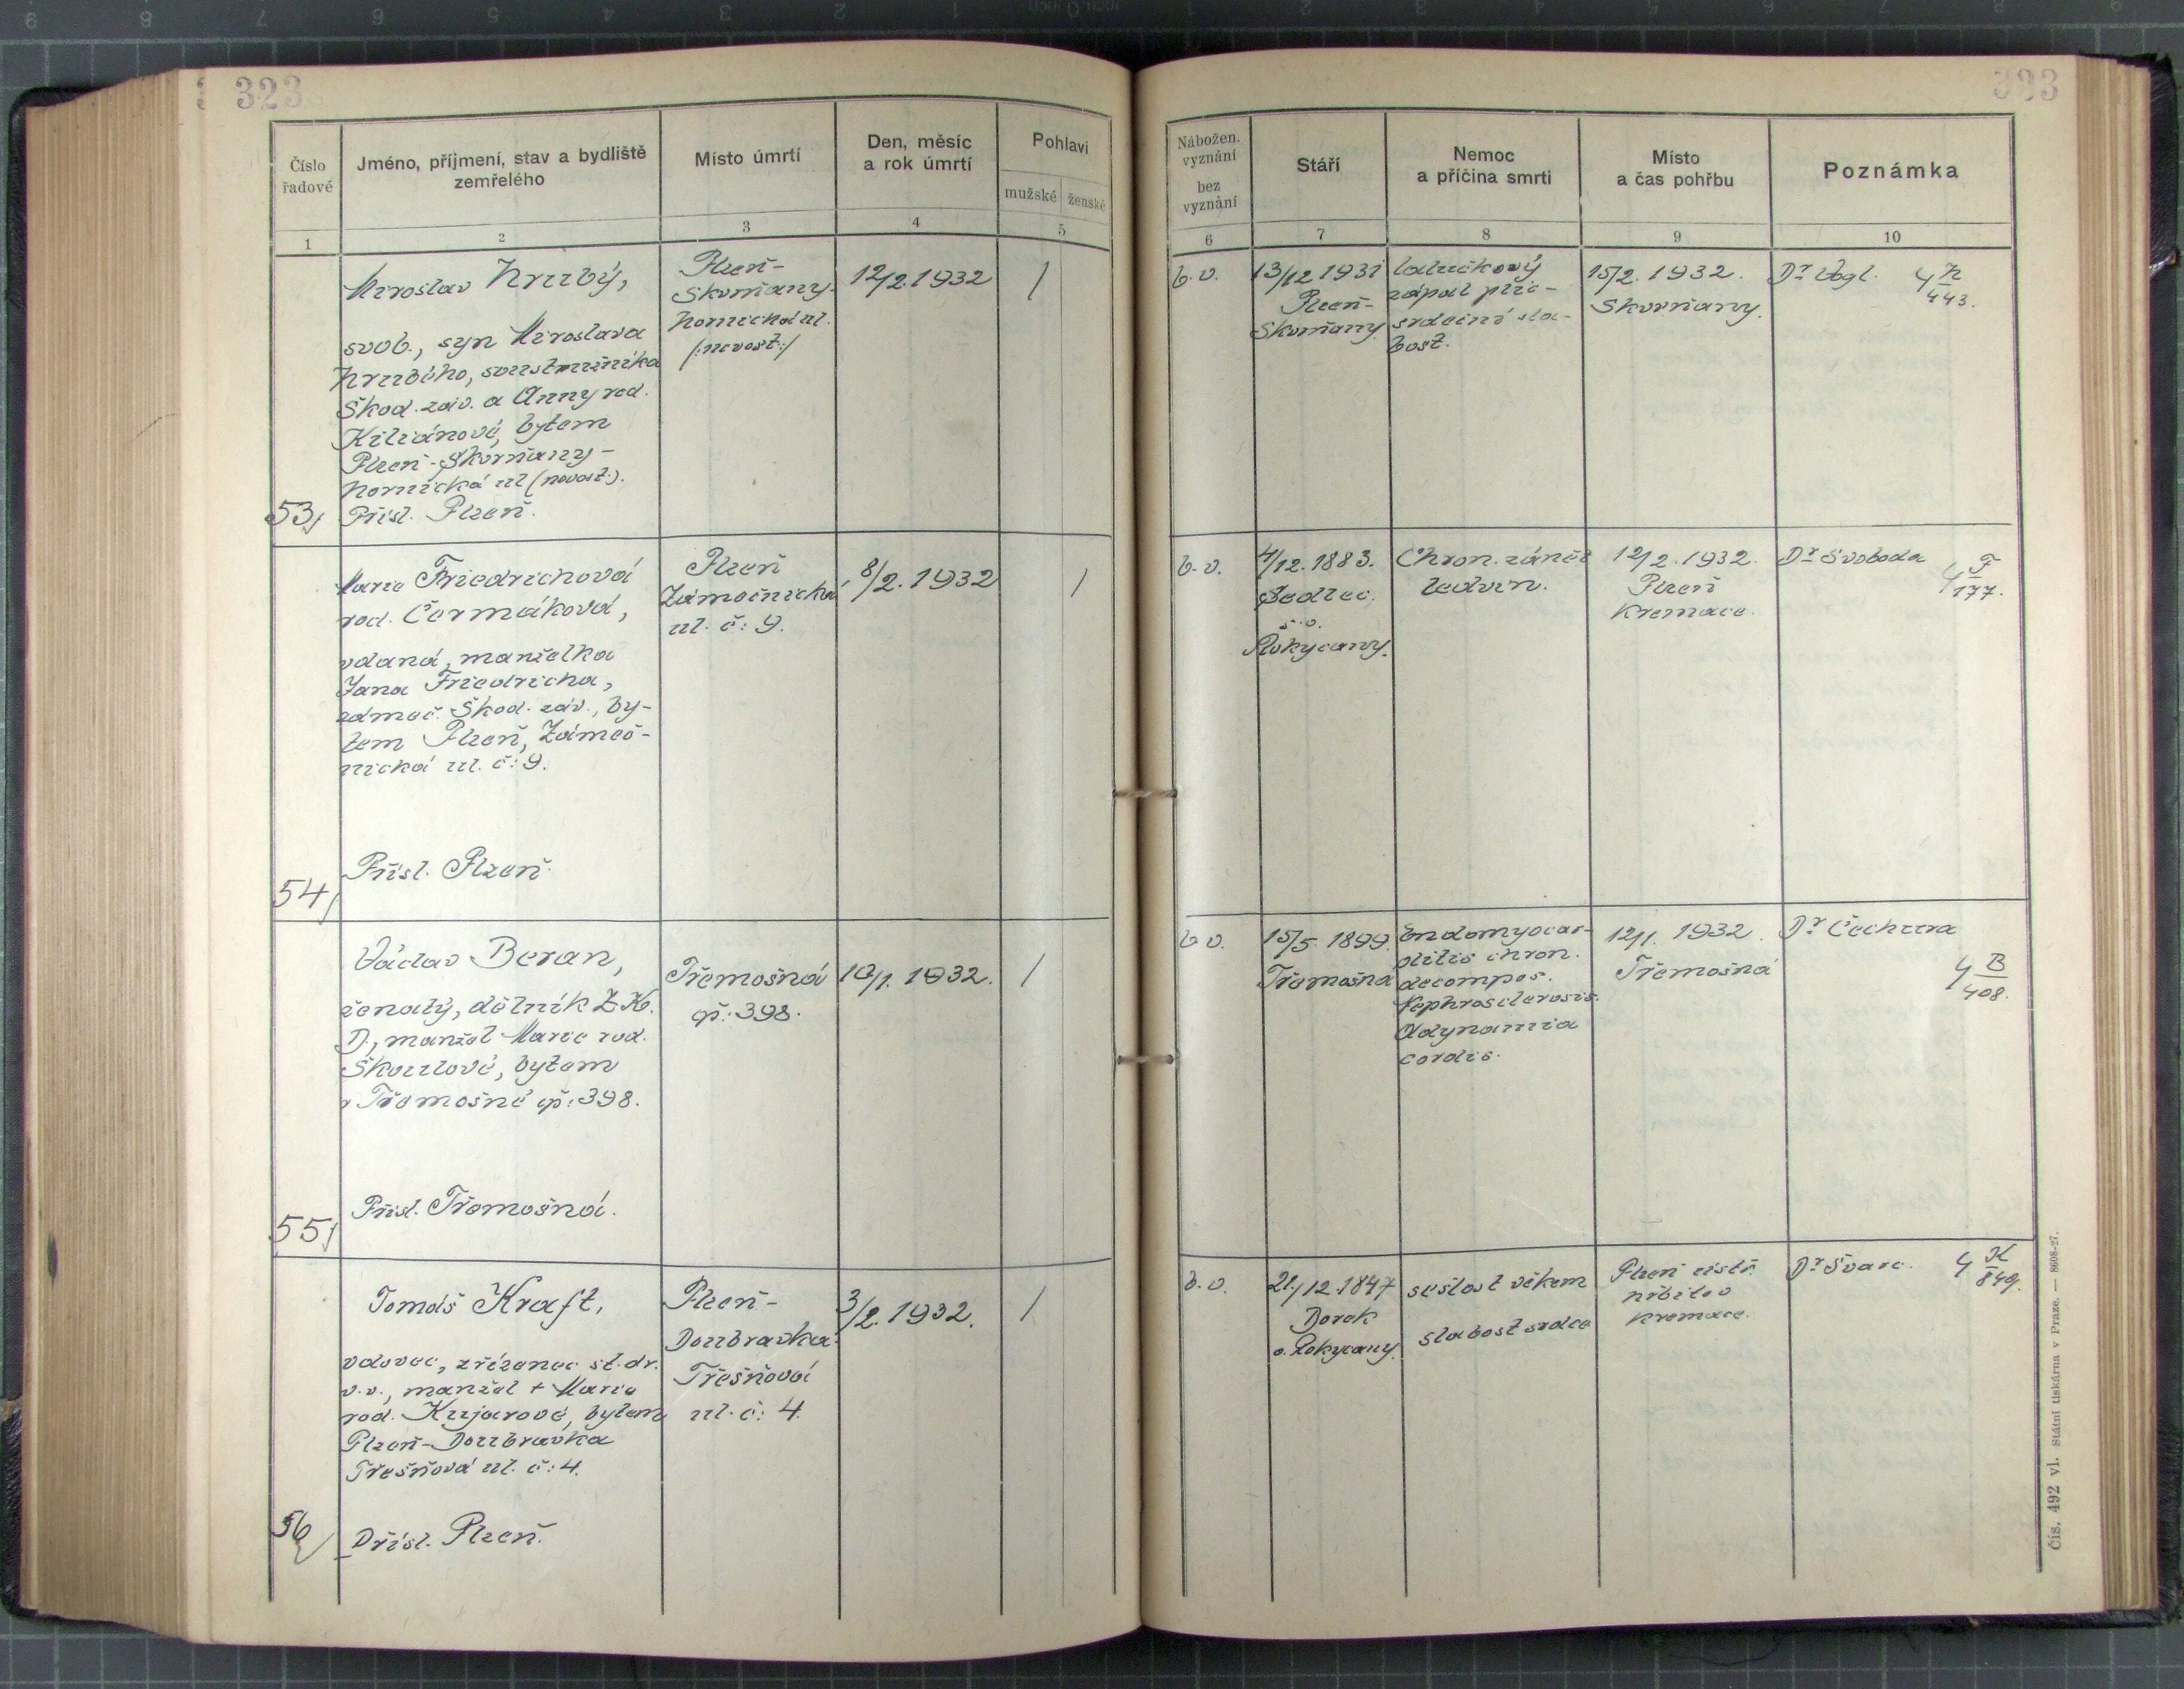 323
Číslo
řadové
Jméno, příjmení, stav a bydliště
zemřelého
Místo úmrtí
Den, měsíc
a rok úmrtí
Pohlaví
mužské ženské
1 2 3 4 5
Miroslav Hrubý,
svob., syn Miroslava
Hrubého, soustružníka
Škod. záv. a Anny roz.
Kiliánové, bytem
Plzeň-Skvrňany-
Hornická ul (novost.).
53) Přísl. Plzeň.
Plzeň-
Skvrňany-
Hornická ul.
/:novost:/
12/2.1932
/
Marie Friedrichová
roz. Čermáková,
vdaná, manželka
Jana Friedricha,
zámeč. Škod. záv., by-
tem Plzeň, Zámeč-
nická ul. č: 9.
Přísl. Plzeň.
54)
Plzeň
Zámečnická
ul. č: 9.
8/2. 1932
/
Václav Beran,
ženatý, dělník Z.K.
D., manžel Marie roz.
Škoulové, bytem
v Třemošné čp: 398.
Přísl. Třemošná.
55)
Třemošná
čp: 398.
10/1. 1932.
/
Tomáš Kraft,
vdovec, zřízenec st. dr.
v.v., manžel + Marie
roz. Kujarové, bytem
Plzeň-Doubravka
Třešňová ul. č: 4.
56) Přísl. Plzeň.
Plzeň-
Doubravka
Třešňová
ul. č: 4.
3/2. 1932.
/
Nábožen.
vyznání
bez
vyznání
Stáří
Nemoc
a příčina smrti
Místo
a čas pohřbu
Poznámka
6 7 8 9 10
b.v.
13/12 1931
Plzeň-
Skvrňany.
lalučkový
zápal plic-
srdeční sla-
bost.
15/2. 1932.
Skvrňany.
Dr Vogl.
4 H/443.
b.v.
4/12. 1883.
Sedlec.
Rokycany.
Chron. zánět
ledvin.
12/2. 1932.
Plzeň
Kremace.
Dr Svoboda
4 F/177.
b.v.
15/5. 1899.
Třemošná
Endomyocar-
ditis chron.
decompos.
Nephrosclerosis.
Adynamia
cordis.
12/1. 1932.
Třemošná
Dr Čechura
4 B/408.
b.v.
21/12.1847
Borek
o. Rokycany.
sešlost věkem
slabost srdce
Plzeň ústř.
hřbitov
kremace.
Dr Švarc.
4 K/849.
Čís. 492 vl. Státní tiskárna v Praze. — 8608-27.